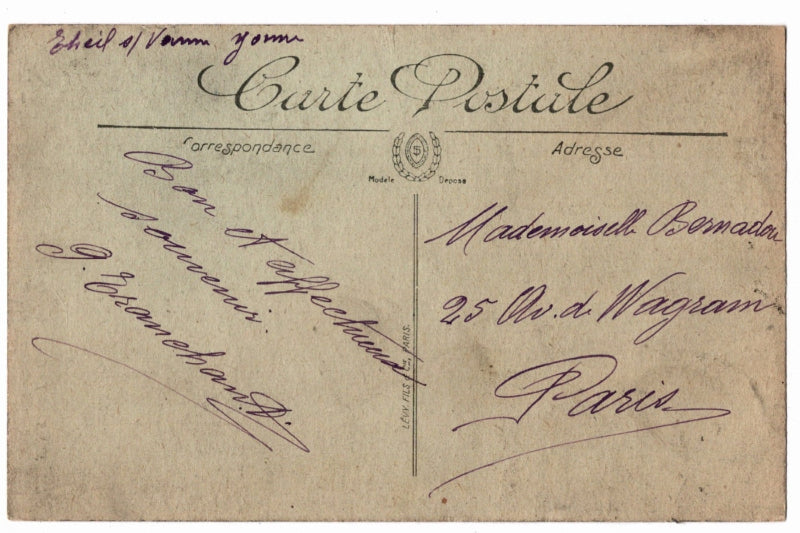 Theil s/ Vanne Yonne
Carte Postale
Correspondance
Adresse
Modèle Déposé
Bon et affectueux
souvenir.
G. Tranchand.
Mademoiselle Bernadou
25 Av. de Wagram
Paris
LÉVY FILS & Cie, PARIS.